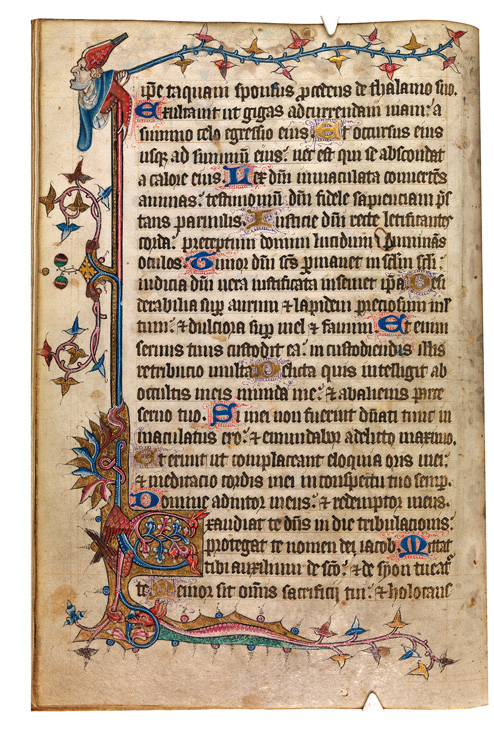 ip̄e taquam sponsus p̱cedens de thalamo suo.
Exultauit ut gigas ad currendam uiam: a
summo celo egressio eius. Et occursus eius
usq; ad summum eius: nec est qui se abscondat
a calore eius. Lex dn̄i inmaculata conuertens
animas: testimoniū dn̄i fidele sapienciam p̄s
tans paruulis. Iusticie dn̄i recte letificantes
corda: preceptum domini lucidum illuminās
oculos. Timor dn̄i sc̄s p̱manet in sc̄lm sc̄li:
iudicia dn̄i uera iustificata in semet ip̄a. Desi
derabilia sup̱ aurum & lapidem preciosum ml
tum: & dulciora sup̱ mel & fauum. Et enim
seruus tuus custodit ea: in custodiendis illis
retribucio multa. Delicta quis intelligit ab
occultis meis munda me: & ab alienis parce
seruo tuo. Si mei non fuerint dn̄ati tunc in
maculatus ero: & emundabor a delicto maximo.
Et erunt ut complaceant eloquia oris mei:
& meditacio cordis mei in conspectu tuo semp̱.
Domine adiutor meus: & redemptor meus.
Exaudiat te dn̄s in die tribulacionis:
protegat te nomen dei iacob. Mittat
tibi auxilium de sc̄o: & de syon tueat᷑
te. Memor sit omnis sacrificii tui: & holocaus